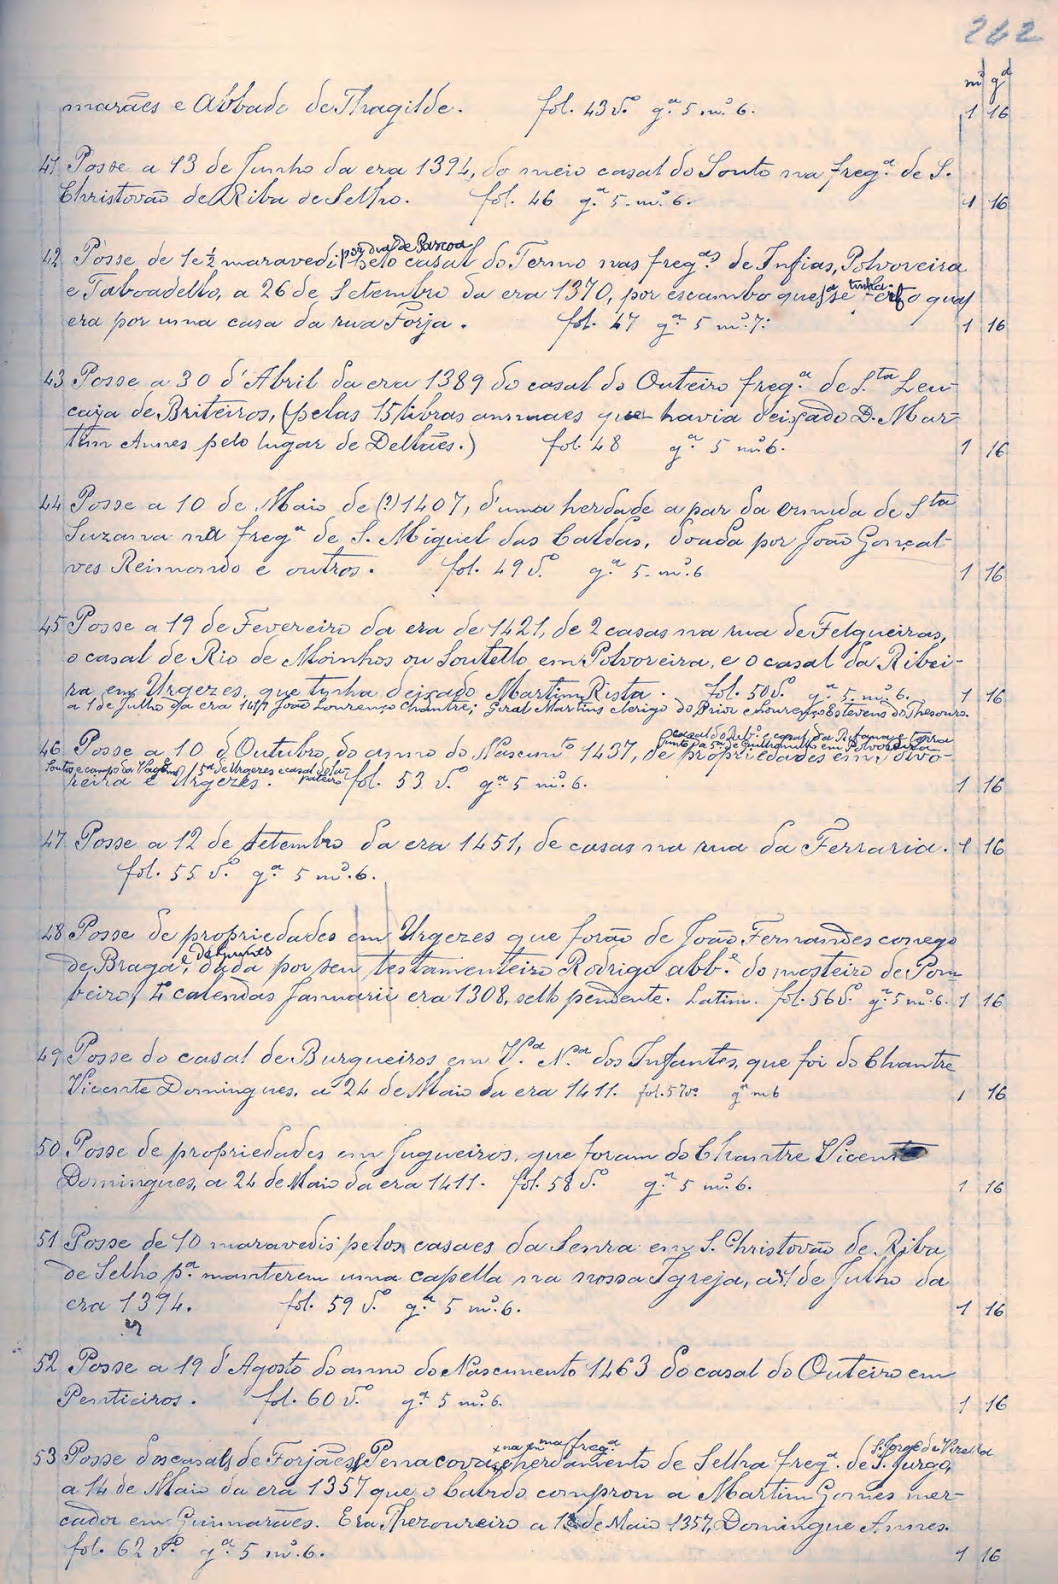 262
mº gª
marães e Abbade de Thagilde. fol. 43 vº gª 5 mº 6. 1 16
41 Posse a 13 de Junho da era 1394, do meio casal do Souto na fregª. de S.
Christovão de Riba de Selho. fol. 46 gª 5. mº 6. 1 16
por dia de Pascoa
42 Posse de 1 e ½ maravedi pelo casal do Termo nas fregªs de Infias, Polvoreira
e Taboadello, a 26 de Setembro da era 1370, por escambo que se fez o qual
era por uma casa da rua Forja. fol. 47 gª 5 mº 7. 1 16
43 Posse a 30 d'Abril da era 1389 do casal do Outeiro fregª. de Sta Leu-
caza de Briteiros, (pelas 15 libras annuaes que havia deixado D. Mar-
tim Annes pelo lugar de Deltães.) fol. 48 gª 5 mº 6. 1 16
44 Posse a 10 de Maio de (?) 1407, d'uma herdade a par da ermida de Sta
Suzana na fregª de S. Miguel das Caldas, doada por João Gonçal-
ves Reimondo e outros. fol. 49 vº. gª 5. mº 6 1 16
45 Posse a 19 de Fevereiro da era de 1421, de 2 casas na rua de Felgueiras,
o casal de Rio de Moinhos ou Soutello em Polvoreira, e o casal da Ribei-
ra em Urgezes, que tinha deixado Martim Rista. fol. 50 vº. gª 5. mº 6. 1 16
a 1 de Julho da era João Lourenço Chantre; Giral Martins clerigo do Prior e Lourenço Estevens do Thesouro.
46 Posse a 10 d'Outubro do anno do Nascimtº 1437, de propriedades em Polvo-
reira e Urgezes. fol. 53 vº. gª 5 mº 6. 1 16
47 Posse a 12 de Setembro da era 1451, de casas na rua da Ferraria. 1 16
fol. 55 vº. gª 5 mº 6.
48 Posse de propriedades em Urgezes que forão de João Fernandes conego
de Braga, dada por seu testamenteiro Rodrigo abbe do mosteiro de Pom-
beiro, calendas Januarii era 1308, sello pendente. Latim. fol. 56 vº. gª 5 mº 6. 1 16
49 Posse do casal de Burgueiros em Vª Nª dos Infantes, que foi do Chantre
Vicente Domingues, a 24 de Maio da era 1411. fol. 57 vº gª m 6 1 16
50 Posse de propriedades em Jugueiros, que foram do Chantre Vicente
Domingues, a 24 de Maio da era 1411. fol. 58 vº. gª 5 mº 6. 1 16
51 Posse de 10 maravedis pelos casaes da Senra em S. Christovão de Riba
de Selho pª. manterem uma capella na nossa Igreja, a de Julho da
era 1394. fol. 59 vº. gª 5 mº 6. 1 16
52 Posse a 19 d'Agosto do anno do Nascimento 1463 do casal do Outeiro em
Pentieiros. fol. 60 vº. gª 5 mº 6. 1 16
53 Posse dos casaes de Forjães, Penacova, e herdamento de Selha fregª. de S. Jurgo,
a 14 de Maio da era 1357 que o Cabido comprou a Martim Gomes mer-
cador em Guimarães. Era Thezoureiro a de Maio 1357, Domingue Annes.
fol. 62 vº. gª 5 mº 6. 1 16